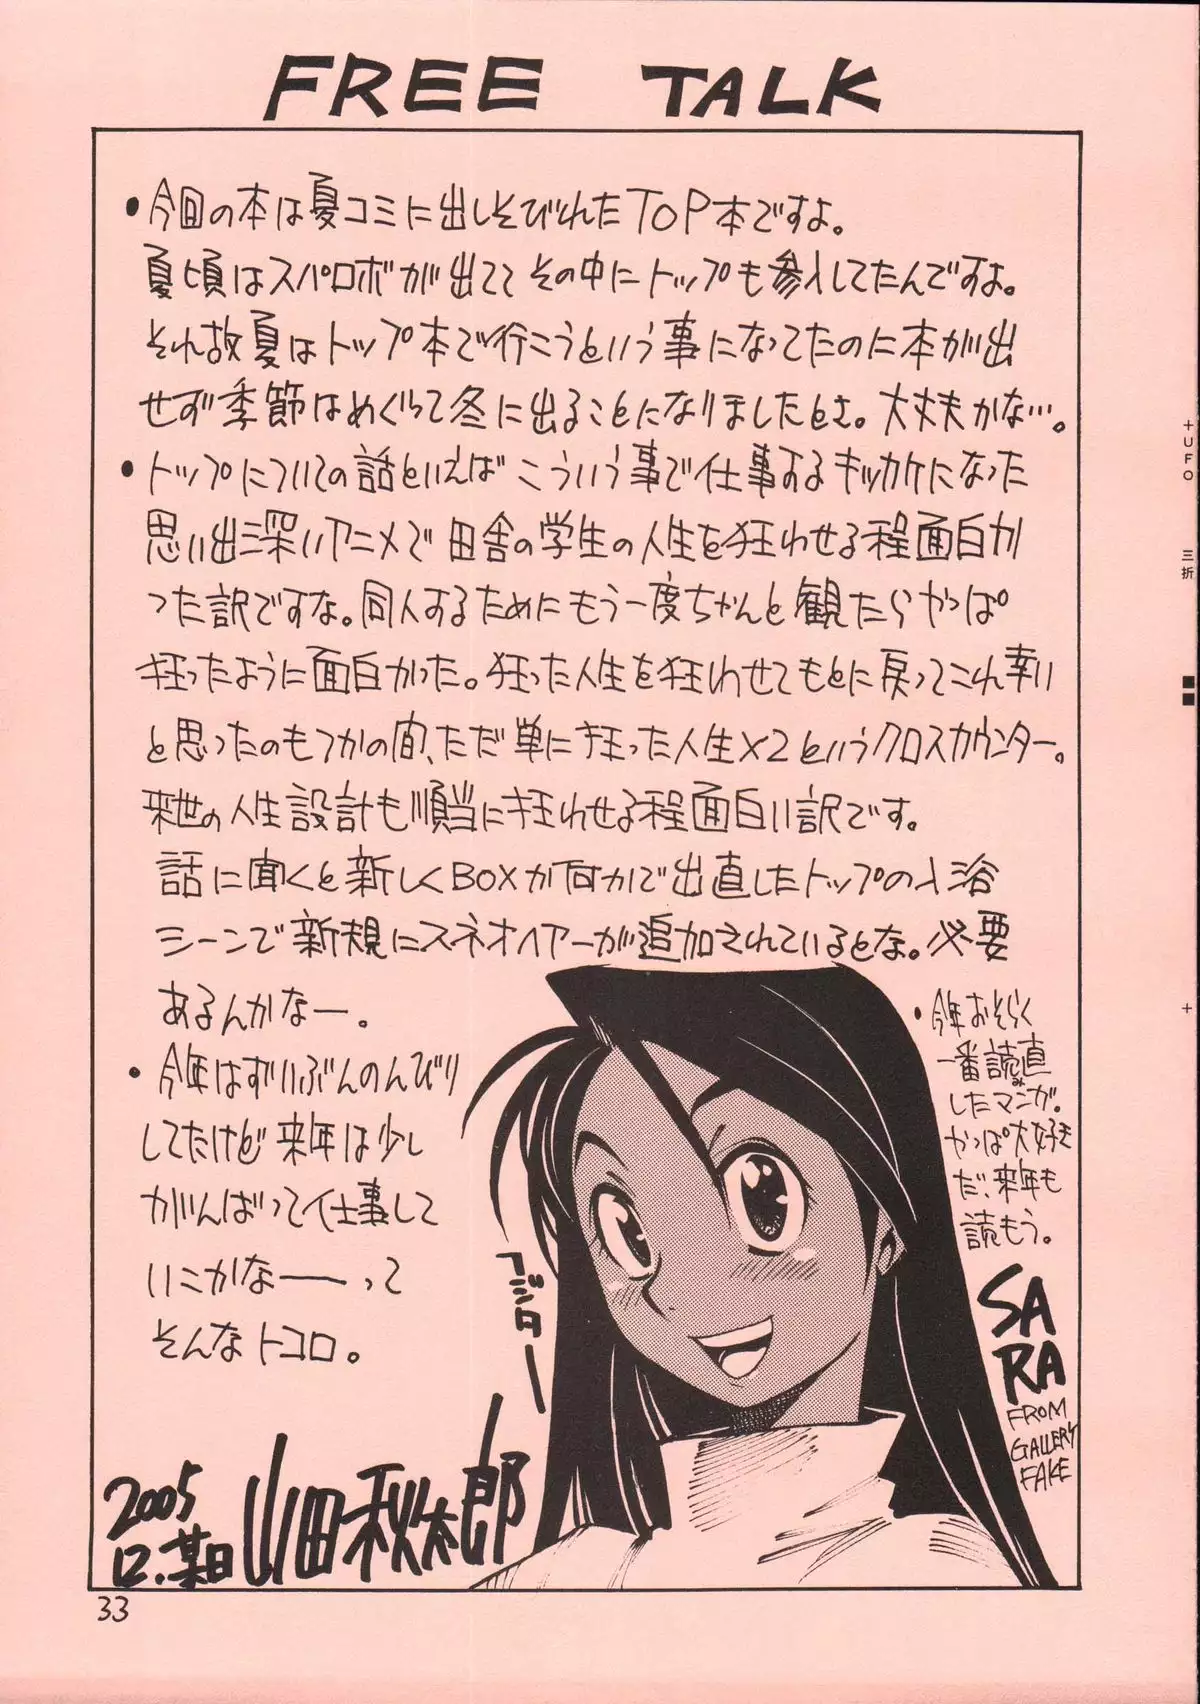 FREE TALK
•今回の本は夏コミに出しそびれたTOP本ですよ。
夏頃はスパロボが出ててその中にトップも参入してたんですよ。
それ故夏はトップ本で行こうという事になってたのに本が出
せず季節はめぐって冬に出ることになりましたとさ。大丈夫かな…。
•トップについての話といえばこういう事で仕事するキッカケになった
思い出深いアニメで田舎の学生の人生を狂わせる程面白か
った訳ですな。同人するためにもう一度ちゃんと観たらやっぱ
狂ったように面白かった。狂った人生を狂わせてもとに戻ってこれ幸い
と思ったのもつかの間、ただ単に狂った人生×2というクロスカウンター。
来世の人生設計も順当に狂わせる程面白い訳です。
話に聞くと新しくBOXか何かで出直したトップの入浴
シーンで新規にスネオヘアーが追加されているとな。必要
あるんかなー。
•今年はずいぶんのんびり
してたけど来年は少し
がんばって仕事して
いこかなー―って
そんなトコロ。
•今年おそらく
一番読み直
したマンガ。
やっぱ大好き
だ、来年も
読もう。
SA
RA
FROM
GALLERY
FAKE
2005
12.某日 山田秋太郎
33
+UFO 三折